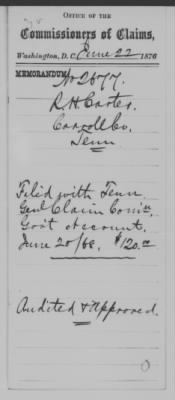 OFFICE OF THE
Commissioners of Claims,
Washington, D. C. June 22 1876
MEMORANDUM
No 2677.
R H Carter
Carroll Co.
Tenn
Filed with Tenn
Genl Claim Com'n
Gov't account.
June 20/68. $120.00
Audited & Approved.